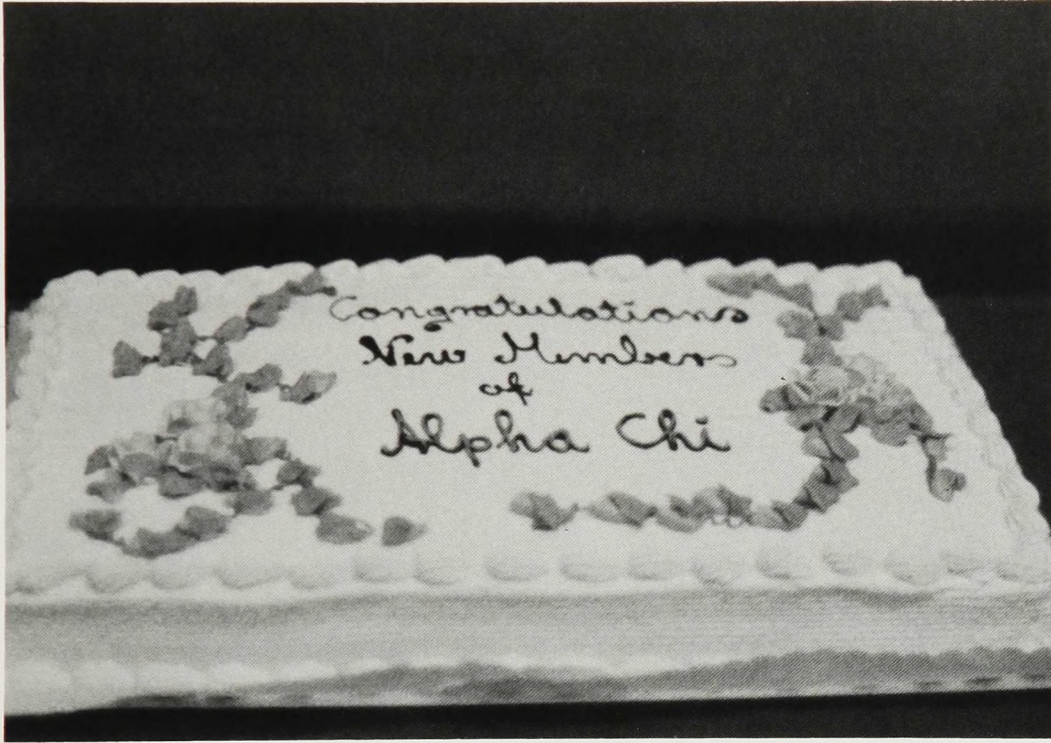 Congratulations
New Members
of
Alpha Chi